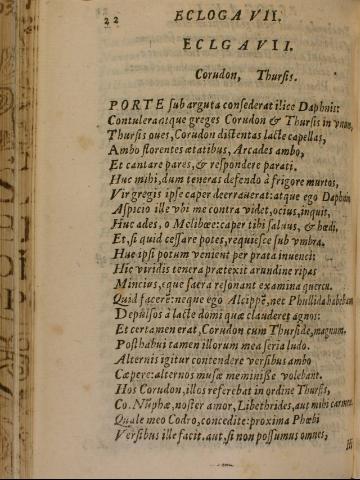 22
ECLOGA VII.
ECLGA VII.
Corudon, Thursis.
PORTE sub arguta consederat ilice Daphnis:
Contuleratque greges Corudon & Thursis in vnum,
Thursis oues, Corudon distentas lacte capellas,
Ambo florentes ætatibus, Arcades ambo,
Et cantare pares, & respondere parati.
Huc mihi, dum teneras defendo à frigore murtos,
Vir gregis ipse caper deerrauerat: atque ego Daphnin
Aspicio ille vbi me contra videt, ocius, inquit,
Huc ades, o Melibœe: caper tibi saluus, & hœdi,
Et, si quid cessare potes, requiesce sub vmbra.
Huc ipsi potum venient per prata iuuenci:
Hic viridis tenera prætexit arundine ripas
Mincius, eque sacra resonant examina quercu.
Quid facerē: neque ego Alcippē, nec Phullida habebam
Depulsos à lacte domi quæ clauderet agnos:
Et certamen erat, Corudon cum Thurside, magnum,
Posthabui tamen illorum mea seria ludo.
Alternis igitur contendere versibus ambo
Cœpere: alternos musæ meminisse volebant.
Hos Corudon, illos referebat in ordine Thursis,
Co. Nūphæ, noster amor, Libethrides, aut mihi carmen
Quale meo Codro, concedite: proxima Phœbi
Versibus ille facit. aut, si non possumus omnes,